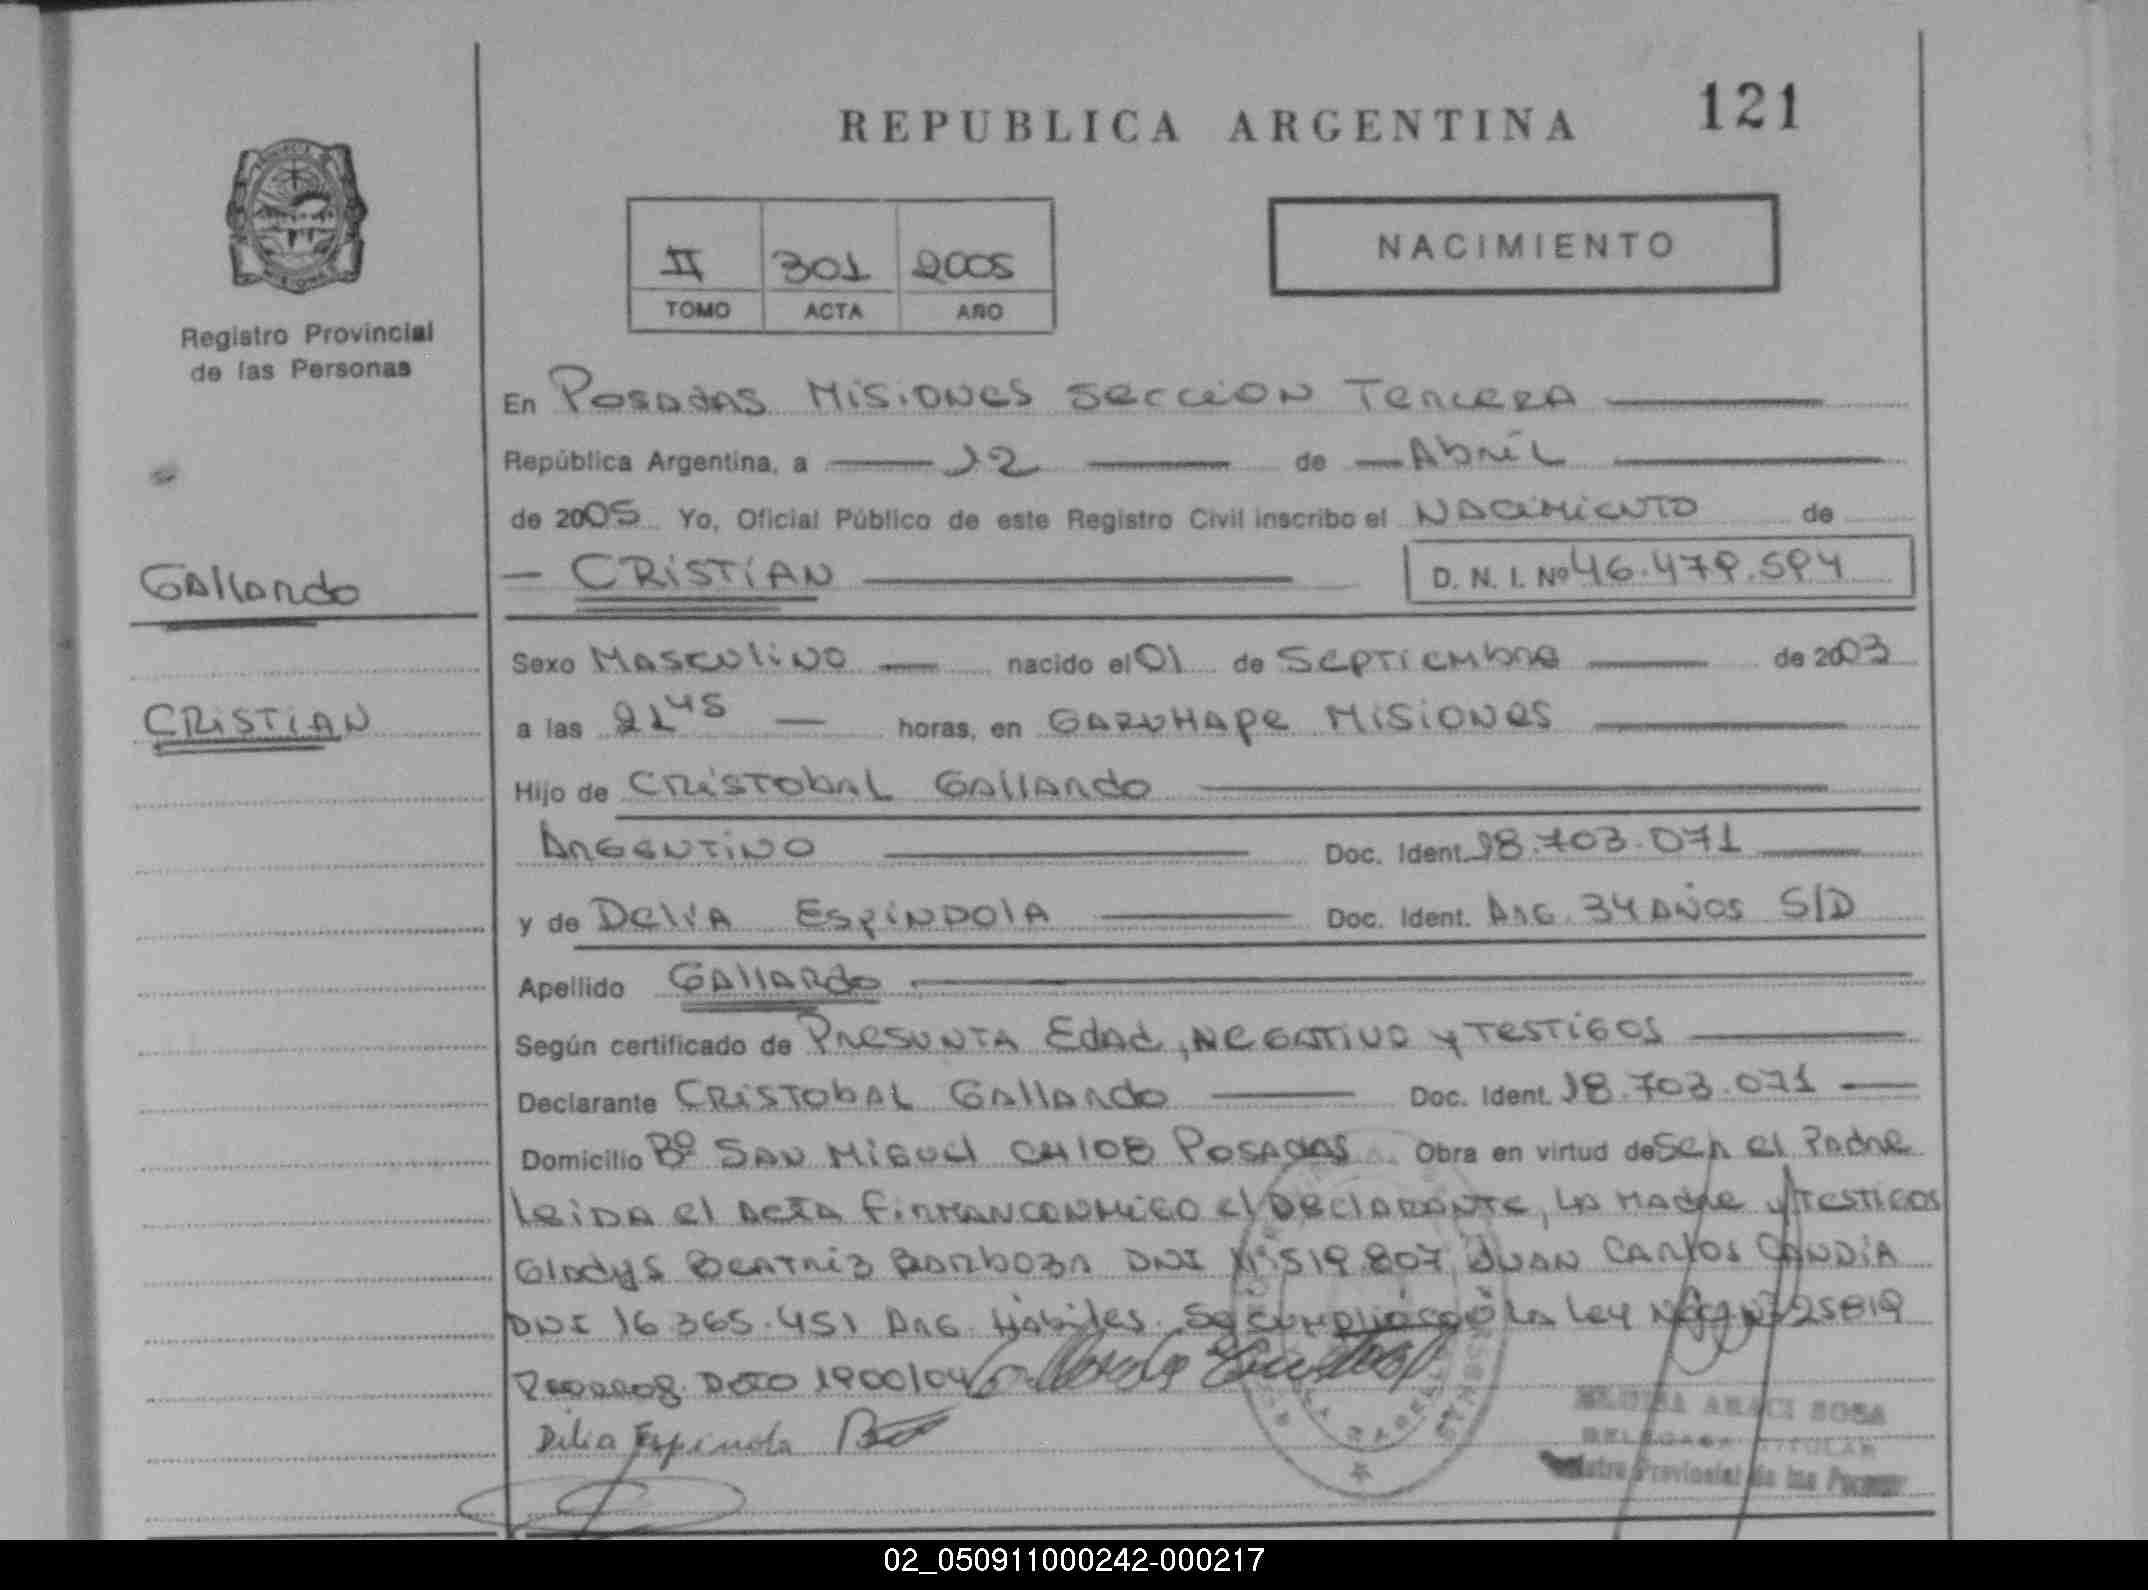 REPUBLICA ARGENTINA 121
II 301 2005
TOMO ACTA AÑO
NACIMIENTO
Registro Provincial
de las Personas
En Posadas Misiones Seccion Tercera
República Argentina, a 12 de Abril
de 2005 Yo, Oficial Público de este Registro Civil inscribo el Nacimiento de
Gallardo
CRISTIAN D. N. I. Nº 46.479.594
Sexo Masculino nacido el 01 de Septiembre de 2003
CRISTIAN
a las 21 45 horas, en Garuhape Misiones
Hijo de Cristobal Gallardo
Argentino Doc. Ident. 18.703.071
y de Delia Espindola Doc. Ident. Arg. 34 Años S/D
Apellido Gallardo
Según certificado de Presunta Edad, Negativo y Testigos
Declarante Cristobal Gallardo Doc. Ident. 18.703.071
Domicilio Bº San Miguel CH 108 Posadas Obra en virtud de Ser el Padre
Leida el Acta Firman conmigo el Declarante, La Madre y Testigos
Gladys Beatriz Barboza DNI Juan Carlos Candia
DNI 16.365.451 Arg. Habiles. La Ley 25819
Dcto 1900/04
Delia Espindola
ARACI SOSA
DELEGADA TITULAR
Registro Provincial de las Personas
02_050911000242-000217